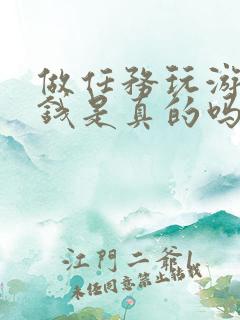 做任務玩游
錢是真的嗎
江門二爺!
未经同意禁止转载